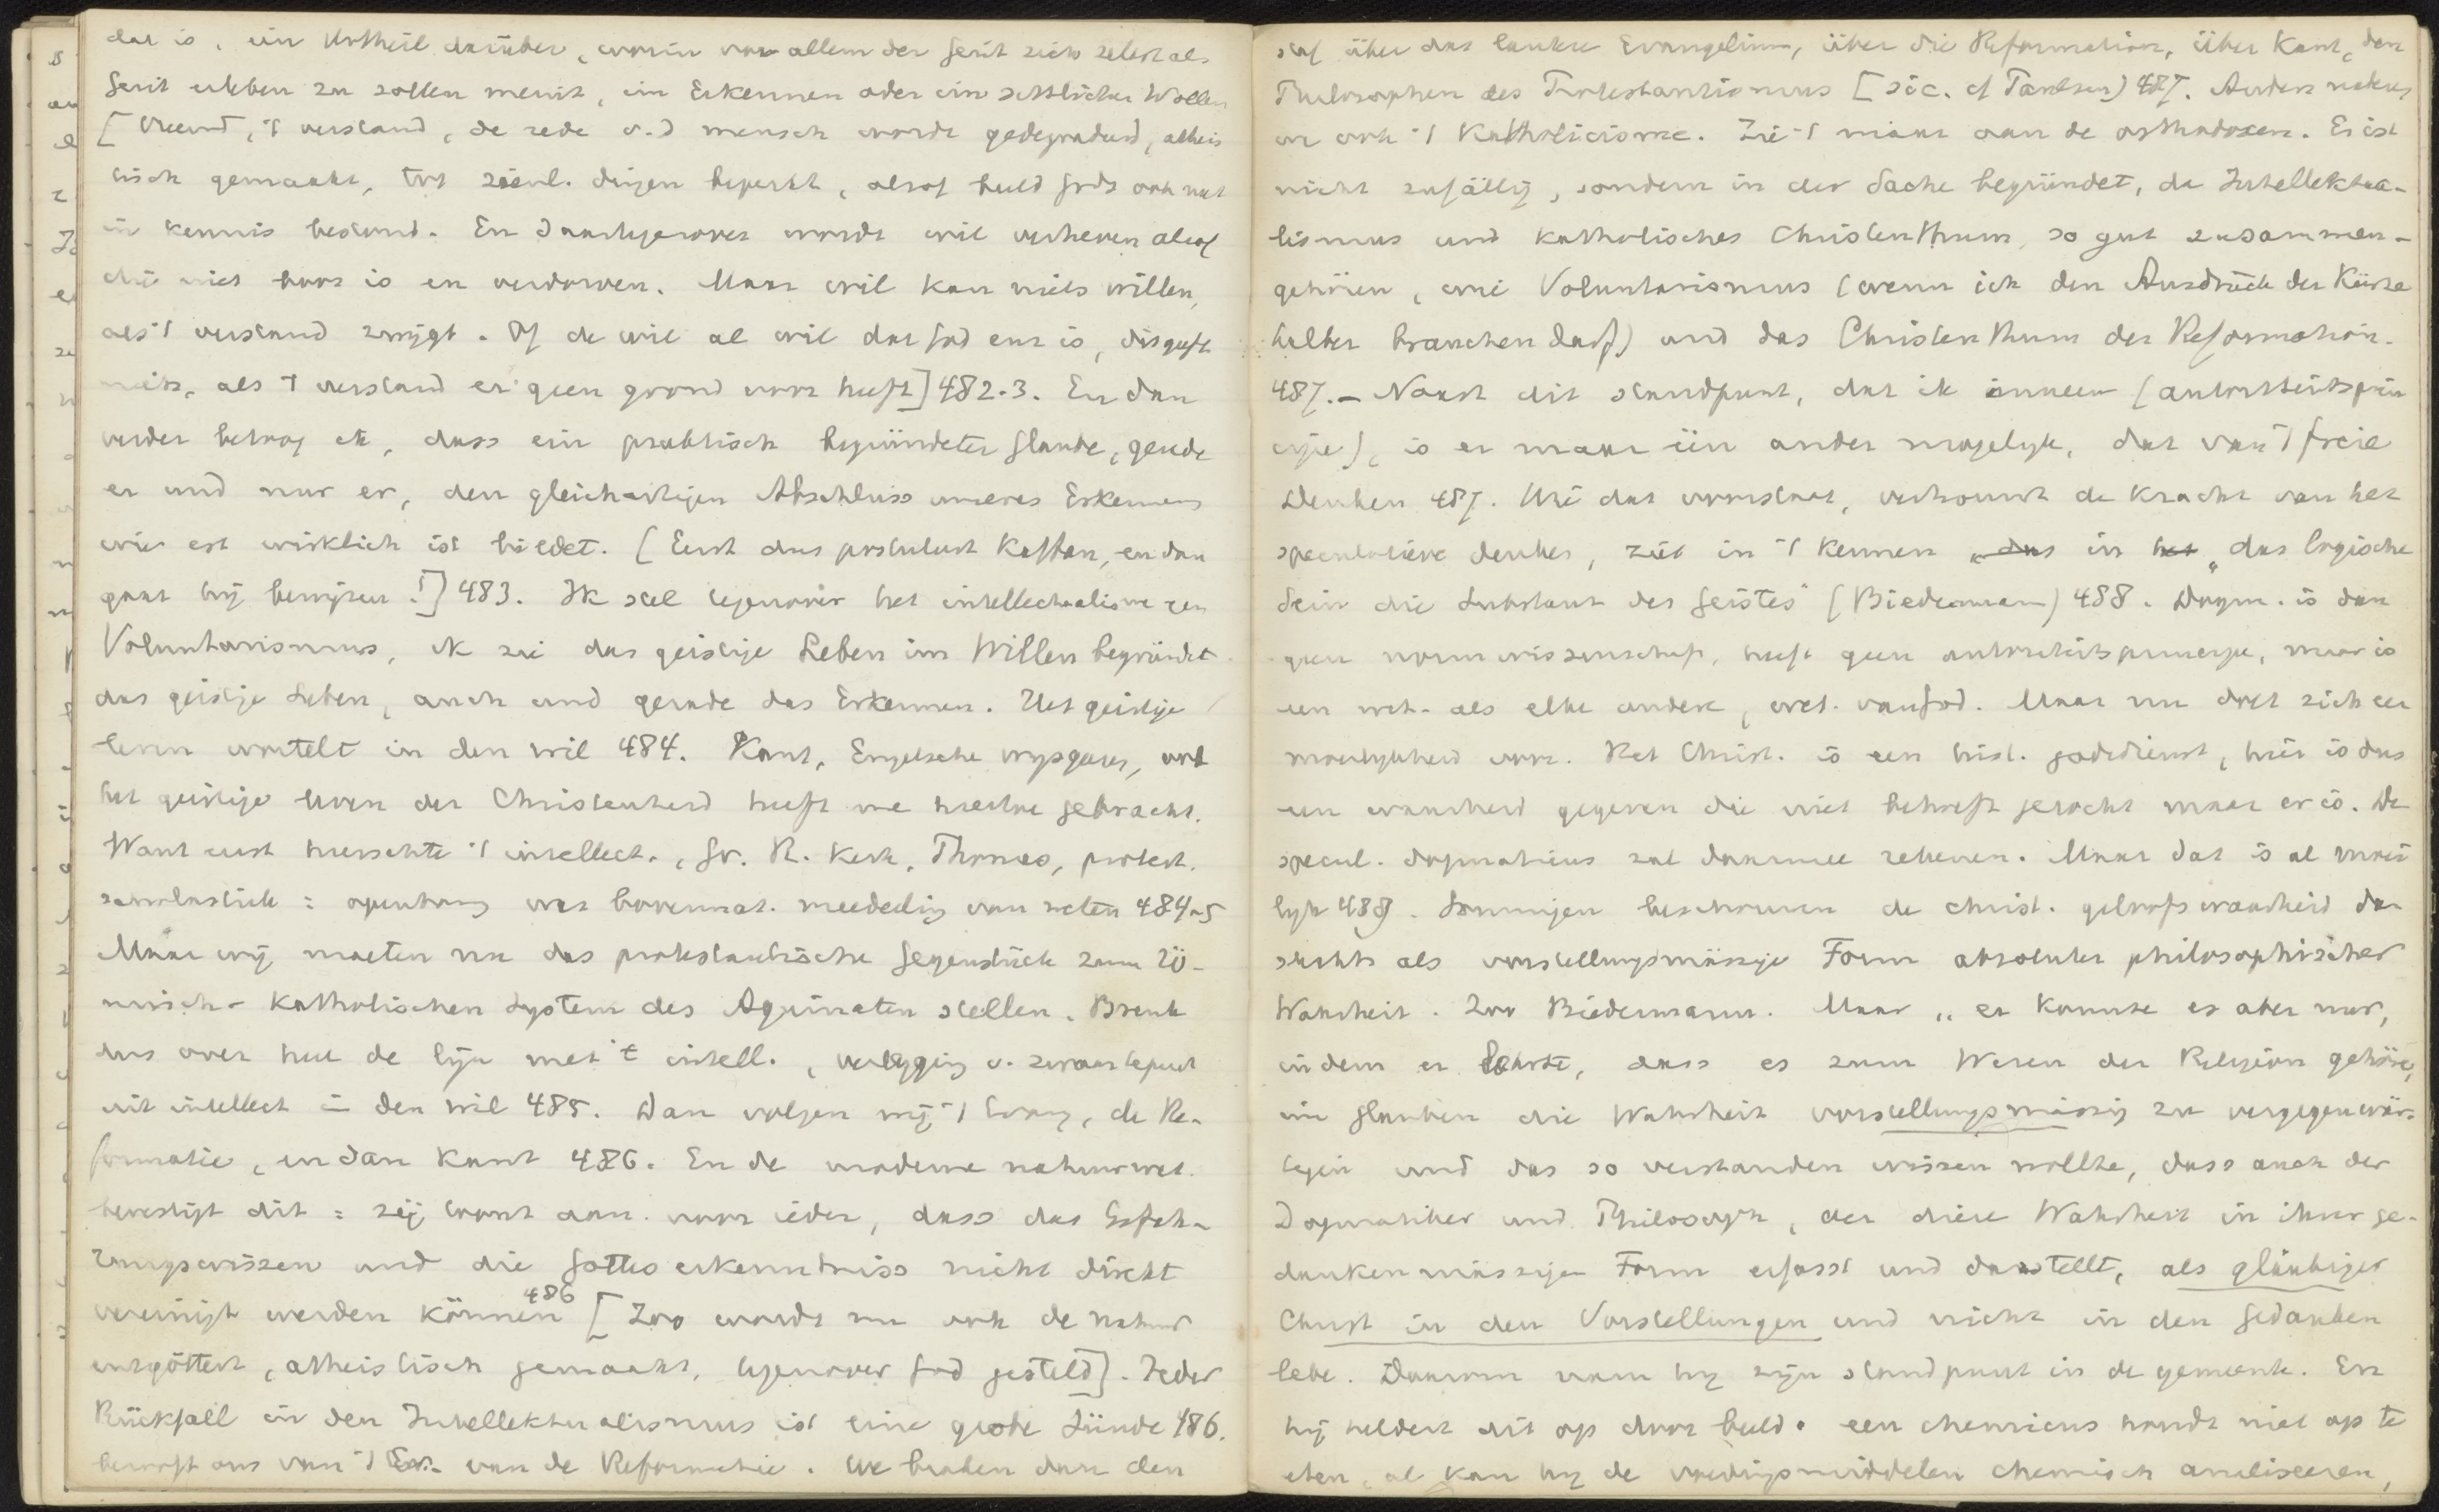 dat is, ein Urtheil darüber, worin vor allem der Geist sich selbst als
Geist erleben zu sollen meint, im Erkennen oder im sittlichen Wollen
[Vreemd, 't verstand, de rede v. d mensch wordt gedegradeerd, atheis
tisch gemaakt, tot zienl. dingen beperkt, alsof beeld Gods ook niet
in kennis bestond. En daartegenover wordt wil verheven alsof
die niet boos is en verdorven. Maar wil kan niets willen,
als 't verstand zwijgt. Of de wil al wil dat God enz is, dis geeft
niets, als 't verstand er geen grond voor heeft] 482-3. En dan
verder betoog ik, dass ein praktisch begründeter Glaube, gerade
er und nur er, den gleichartigen Abschluss unseres Erkennens
wie est wirklich ist bietet. [Eerst dus postulaat Kaftan, en dan
gaat hij bewijzen!] 483. Ik stel tegenover het intellectualisme een
Voluntarismus, ik zie das geistige Leben im Willen begründet
das geistige Leben, auch und gerade das Erkennen. Het geistige
leven wortelt in den wil 484. Kant, Engelsche wijsgeeren, ook
het geistige leven der Christenheid heeft me hiertoe gebracht.
Want eerst heerschte 't intellect, Gr. R. Kerk, Thomas, protest.
scholastiek = openbaring was bovennat. mededeeling van weten 484-5
Maar wij moeten nu das protestantische Gegenstück zum rö-
misch-katholischen System des Aquinaten stellen. Breuk
dus over heel de lijn met 't intell., verlegging v. zwaartepunt
uit intellect in den wil 485. Dan volgen wij 't Evang, de Re-
formatie, en dan Kant 486. En de moderne natuurwet.
bevestigt dit = zij toont aan voor ieder, dass das Erfah-
rungswissen und die Gotteserkenntniss nicht direkt
vereinigt werden können 486 [Zoo wordt nu ook de natuur
entgöttert, atheistisch gemaakt, tegenover God gesteld]. Jeder
Rückfall in den Intellektualismus ist eine grobe Sünde 486.
berooft ons van 't Ev. van de Reformatie. We braken dan den
staf über das lautere Evangelium, über die Reformation, über Kant, den
Philosophen des Protestantismus [sic. cf Paulsen) 487. Anders naken
we ook 't Katholicisme. Zie 't maar aan de orthodoxen. Es ist
nicht zufällig, sondern in der Sache begründet, da Intellektua-
lismus und katholisches Christenthum, so gut zusammen-
gehören, wie Voluntarismus (wenn ich den Ausdruck der Kürze
halber brauchen darf) und das Christenthum der Reformation.
487. – Naast dit standpunt, dat ik inneem (autoriteitsprin
cipe), is er maar één ander mogelijk, dat van 't freie
Denken 487. Wie dat voorstaat, vertrouwt de kracht van het
speculatieve denken, ziet in 't kennen „das in het „das logische
Sein die Substanz des Geistes" (Biedermann) 488. Dogm. is dan
geen normwissenschaft, heeft geen autoriteitsprincipe, maar is
een wet. als elke andere, wet. van God. Maar nu doet zich een
moeilijkheid voor. Het Christ. is een hist. godsdienst, hier is dus
een waarheid gegeven die niet behoeft gezocht maar er is. De
specul. dogmaticus zal daarmee rekenen. Maar dat is al moei
lijk 488. Sommigen beschouwen de christ. geloofswaarheid dan
slechts als vorstellungsmässige Form absoluter philosophischer
Wahrheit. Zoo Biedermann. Maar „er konnte es aber nur,
indem er lehrte, dass es zum Wesen der Religion gehöre,
im Glauben die Wahrheit vorstellungsmässig zu vergegenwär-
tigen und das so verstanden wissen wollte, dass auch der
Dogmatiker und Philosoph, der diese Wahrheit in ihrer ge-
dankenmässigen Form erfasst und darstellt, als gläubiger
Christ in den Vorstellungen und nicht in den Gedanken
lebe. Daarom nam hij zijn standpunt in de gemeente. En
hij heldert dit op door beeld. een chemicus houdt niet op te
eten, al kan hij de voedingsmiddelen chemisch analiseeren,